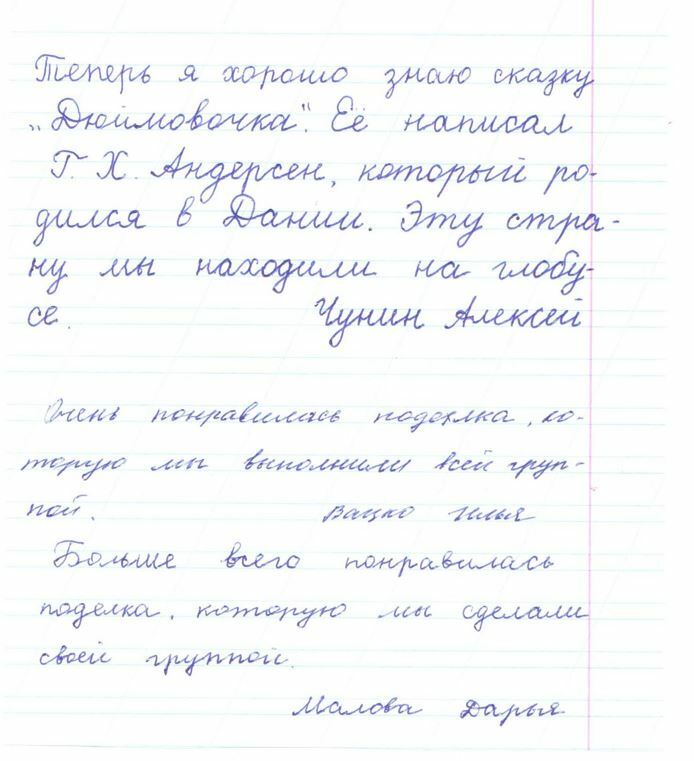 Теперь я хорошо знаю сказку
„Дюймовочка". Её написал
Г. Х. Андерсен, который ро-
дился в Дании. Эту стра-
ну мы находили на глобу-
се. Чунин Алексей
Очень понравилась поделка, ко-
торую мы выполнили всей груп-
пой. Вацко Илья
Больше всего понравилась
поделка, которую мы сделали
своей группой.
Малова Дарья